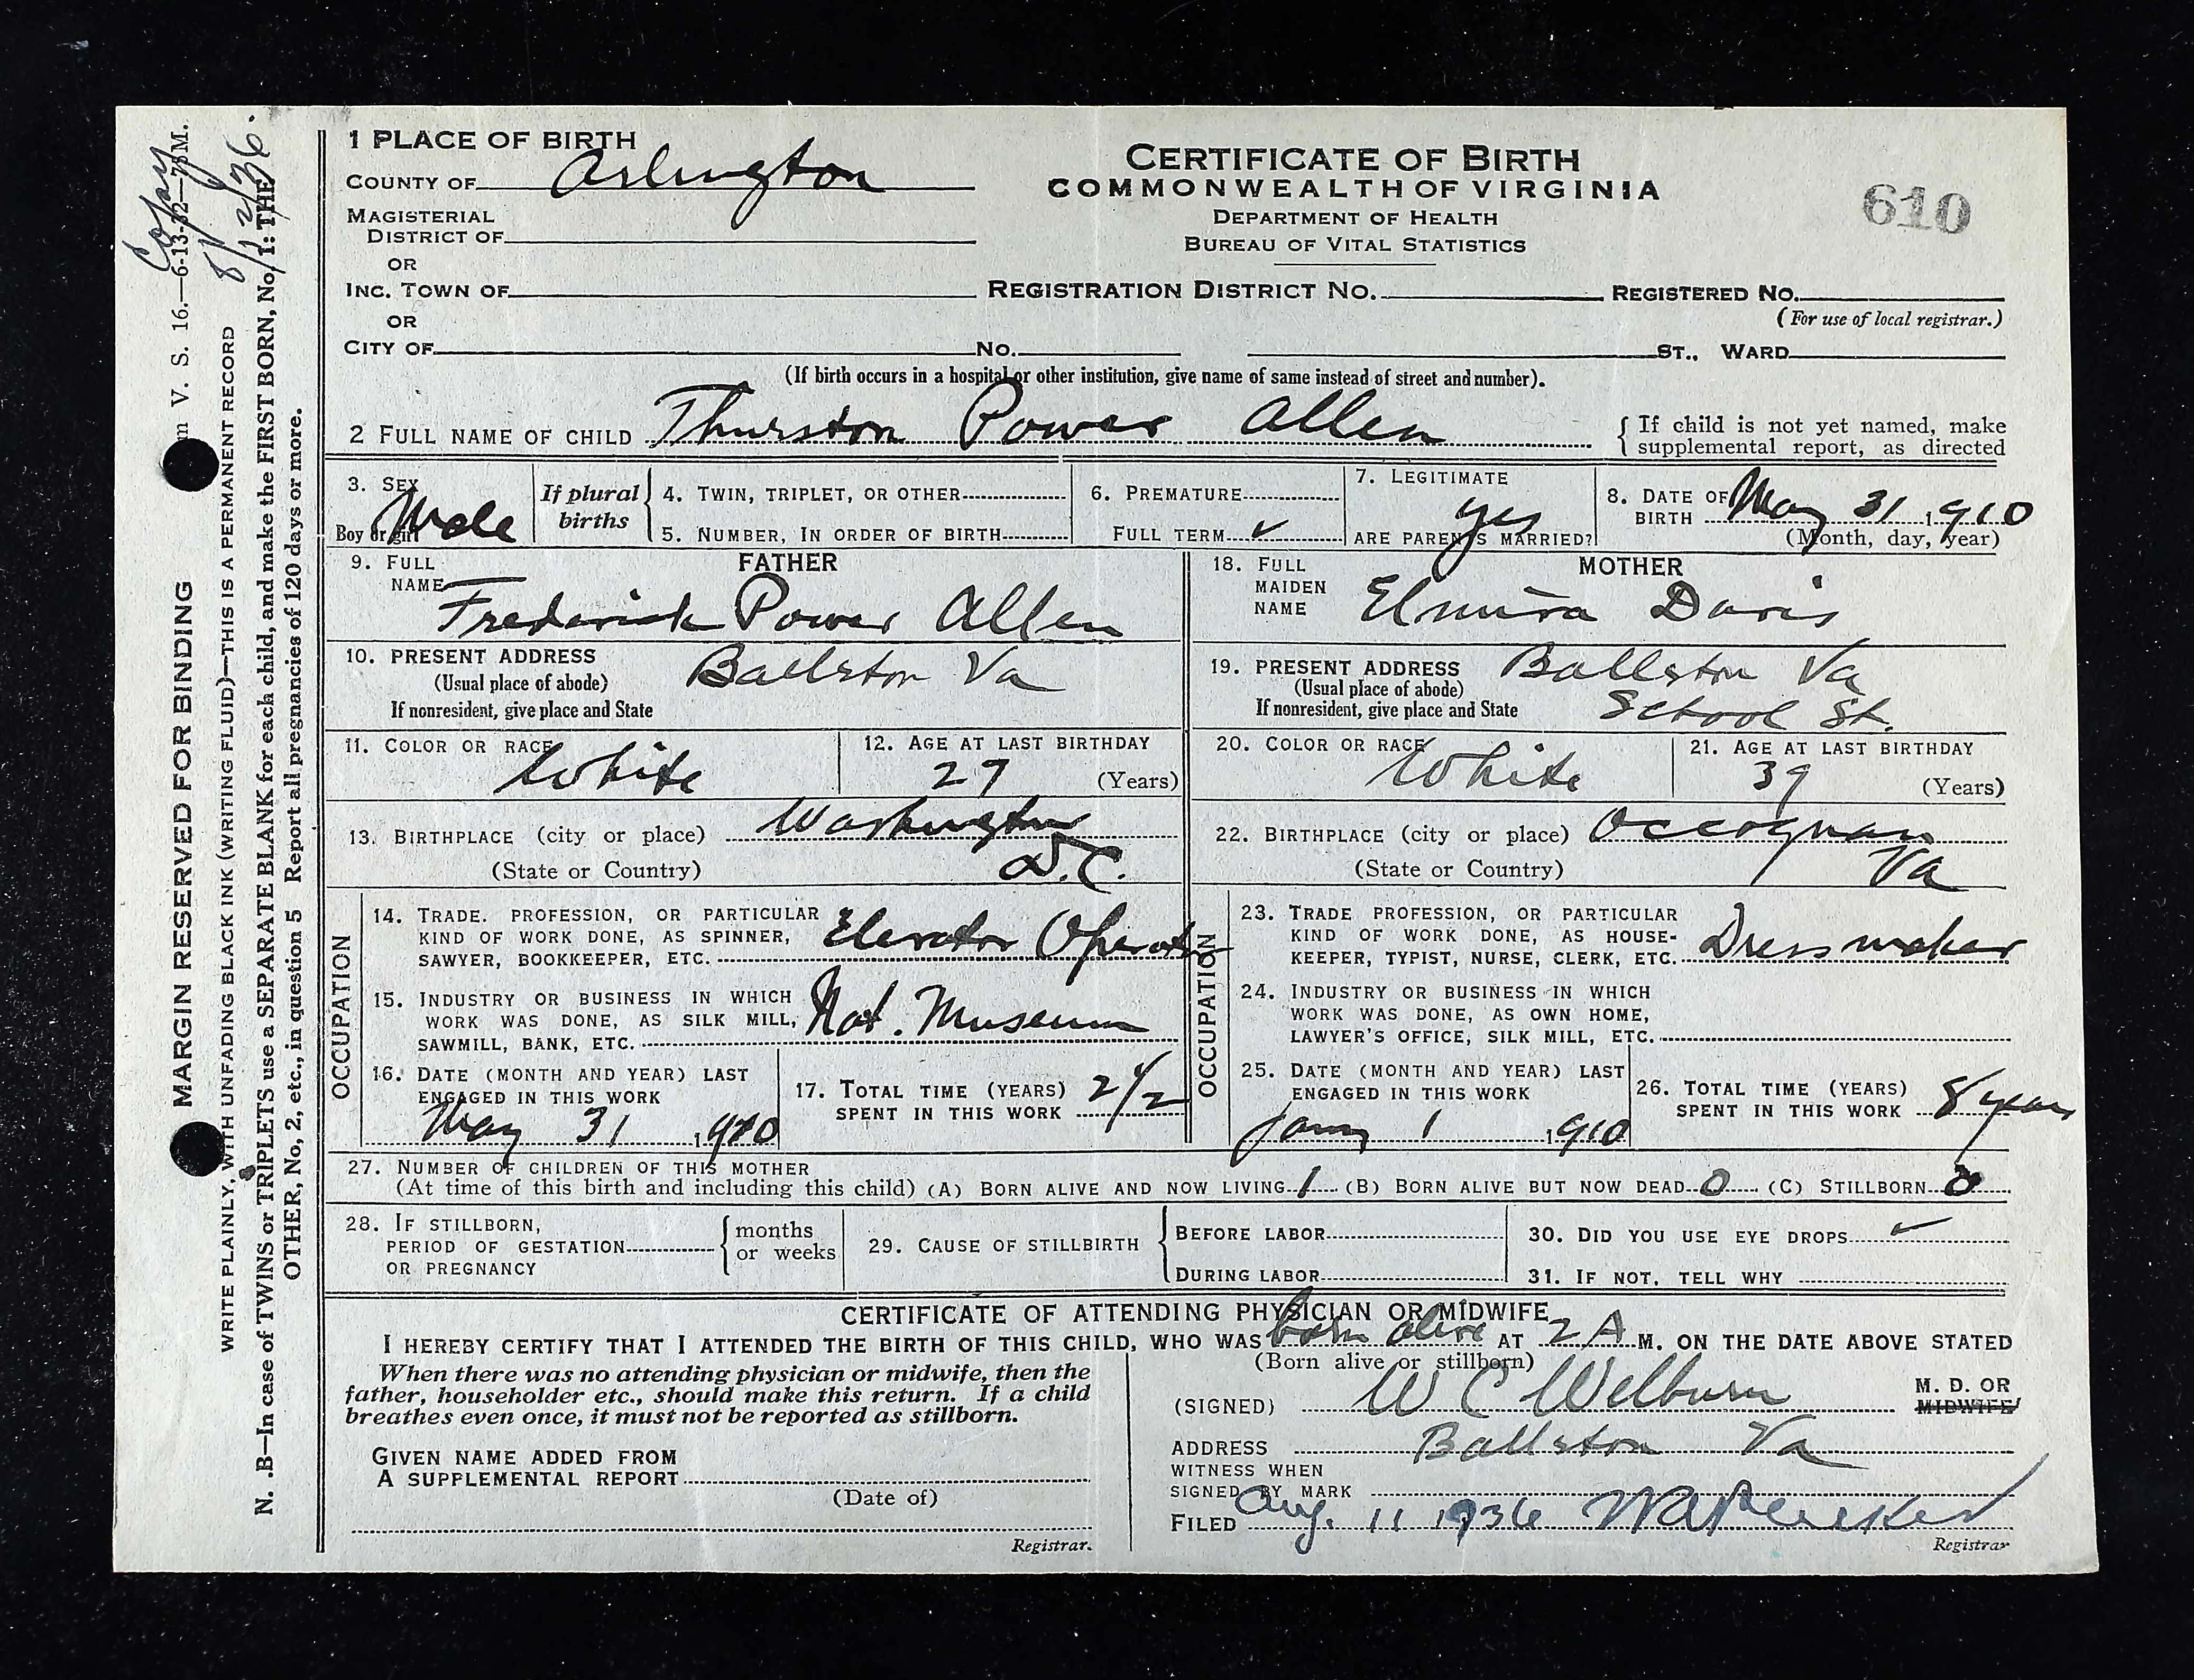 1 PLACE OF BIRTH
COUNTY OF Arlington
MAGISTERIAL
DISTRICT OF
OR
INC. TOWN OF
OR
CITY OF No. ST., WARD
CERTIFICATE OF BIRTH
COMMONWEALTH OF VIRGINIA
DEPARTMENT OF HEALTH
BUREAU OF VITAL STATISTICS
610
REGISTRATION DISTRICT NO. REGISTERED NO.
(For use of local registrar.)
(If birth occurs in a hospital or other institution, give name of same instead of street and number).
2 FULL NAME OF CHILD Thurston Power Allen
{ If child is not yet named, make
supplemental report, as directed
3. SEX
Boy or girl Male
If plural
births
4. TWIN, TRIPLET, OR OTHER
5. NUMBER, IN ORDER OF BIRTH
6. PREMATURE
FULL TERM ✓
7. LEGITIMATE
yes
ARE PARENTS MARRIED?
8. DATE OF
BIRTH May 31, 1910
(Month, day, year)
FATHER
9. FULL
NAME
Frederick Power Allen
10. PRESENT ADDRESS Ballston Va
(Usual place of abode)
If nonresident, give place and State
11. COLOR OR RACE White
12. AGE AT LAST BIRTHDAY
27 (Years)
13. BIRTHPLACE (city or place) Washington
(State or Country) D.C.
OCCUPATION
14. TRADE. PROFESSION, OR PARTICULAR
KIND OF WORK DONE, AS SPINNER,
SAWYER, BOOKKEEPER, ETC. Elevator Operator
15. INDUSTRY OR BUSINESS IN WHICH
WORK WAS DONE, AS SILK MILL,
SAWMILL, BANK, ETC. Nat. Museum
16. DATE (MONTH AND YEAR) LAST
ENGAGED IN THIS WORK
May 31, 1910
17. TOTAL TIME (YEARS)
SPENT IN THIS WORK 2 1/2
MOTHER
18. FULL
MAIDEN
NAME Elmira Davis
19. PRESENT ADDRESS Ballston Va
(Usual place of abode)
If nonresident, give place and State School St.
20. COLOR OR RACE White
21. AGE AT LAST BIRTHDAY
39 (Years)
22. BIRTHPLACE (city or place) Occoquan
(State or Country) Va
OCCUPATION
23. TRADE PROFESSION, OR PARTICULAR
KIND OF WORK DONE, AS HOUSE-
KEEPER, TYPIST, NURSE, CLERK, ETC. Dressmaker
24. INDUSTRY OR BUSINESS IN WHICH
WORK WAS DONE, AS OWN HOME,
LAWYER'S OFFICE, SILK MILL, ETC.
25. DATE (MONTH AND YEAR) LAST
ENGAGED IN THIS WORK
1 1910
26. TOTAL TIME (YEARS)
SPENT IN THIS WORK 8 years
27. NUMBER OF CHILDREN OF THIS MOTHER
(At time of this birth and including this child) (A) BORN ALIVE AND NOW LIVING 1 (B) BORN ALIVE BUT NOW DEAD 0 (C) STILLBORN 0
28. IF STILLBORN,
PERIOD OF GESTATION
OR PREGNANCY
{ months
or weeks
29. CAUSE OF STILLBIRTH
BEFORE LABOR
DURING LABOR
30. DID YOU USE EYE DROPS ✓
31. IF NOT, TELL WHY
CERTIFICATE OF ATTENDING PHYSICIAN OR MIDWIFE
I HEREBY CERTIFY THAT I ATTENDED THE BIRTH OF THIS CHILD, WHO WAS born alive AT 2 A M. ON THE DATE ABOVE STATED
(Born alive or stillborn)
When there was no attending physician or midwife, then the
father, householder etc., should make this return. If a child
breathes even once, it must not be reported as stillborn.
GIVEN NAME ADDED FROM
A SUPPLEMENTAL REPORT
(Date of)
Registrar.
(SIGNED) W C Welburn M. D. OR
MIDWIFE
ADDRESS Ballston Va
WITNESS WHEN
SIGNED BY MARK
FILED Aug. 11 1936
Registrar
Copy
8/12/36.
m V. S. 16.—6-13-32—75M.
MARGIN RESERVED FOR BINDING
WRITE PLAINLY, WITH UNFADING BLACK INK (WRITING FLUID)—THIS IS A PERMANENT RECORD
N. .B—In case of TWINS or TRIPLETS use a SEPARATE BLANK for each child, and make the FIRST BORN, No. 1: THE
OTHER, No, 2, etc., in question 5 Report all pregnancies of 120 days or more.